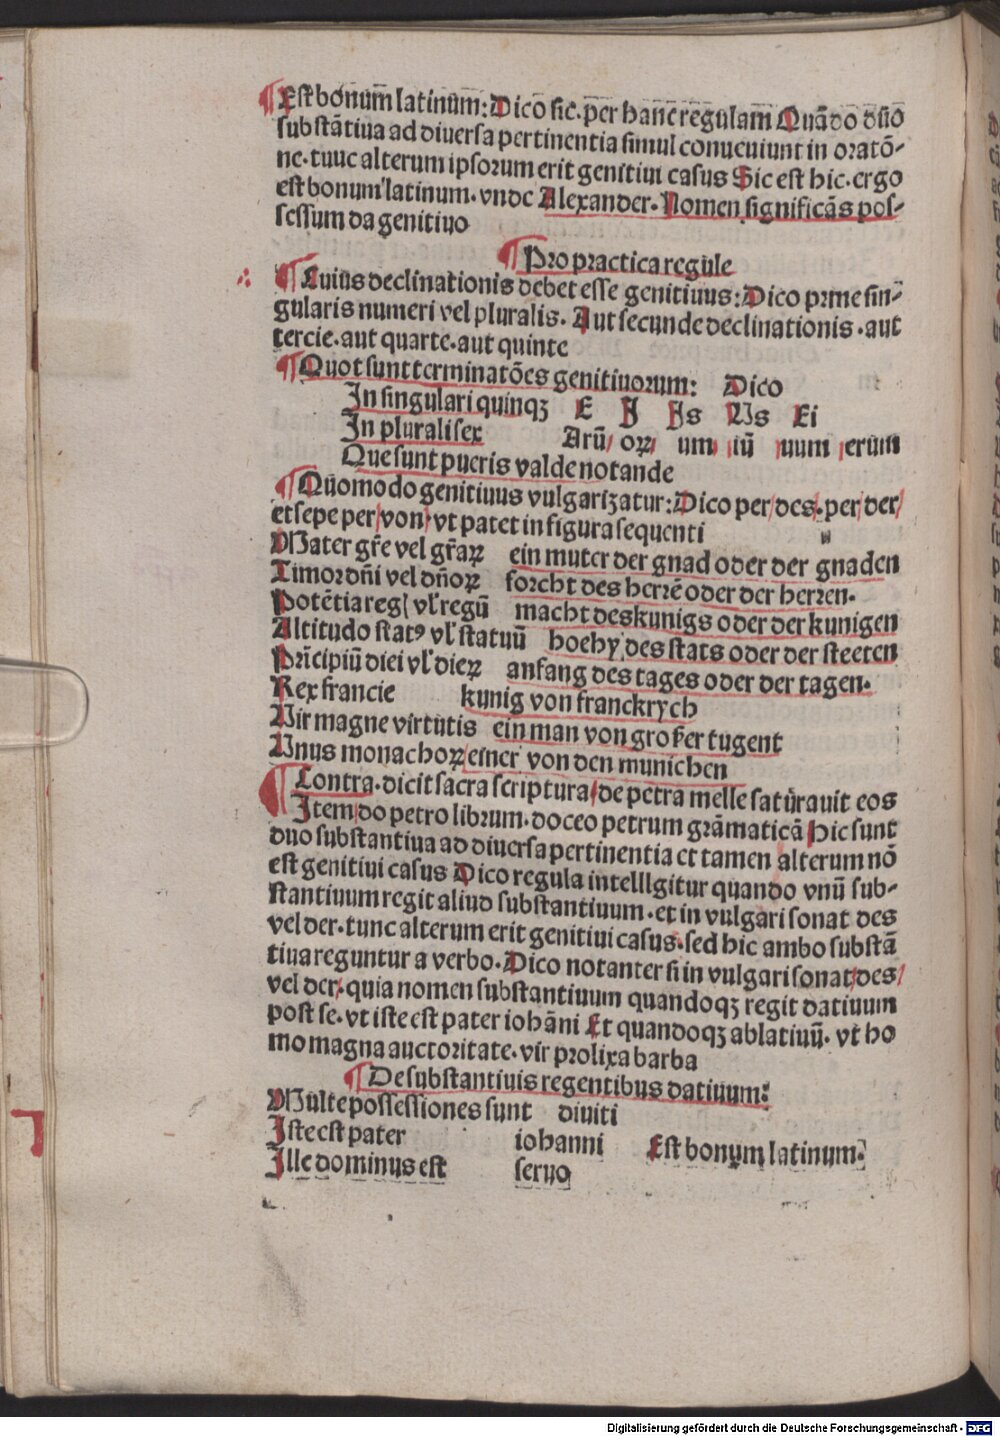 ¶Est bonum̄ latinūm: Dico sic. per hanc̄ regulam Quādo duo
substātiua ad diuersa pertinentia simul conueuiunt in oratō-
ne. tuuc alterum ipsorum erit genitiui casus Sic est hic. ergo
est bonum latinum. vnde Alexander. Nomen significās pos-
sessum da genitiuo
¶Pro practica regule
¶Cuius declinationis debet esse genitiuus: Dico prime sin-
gularis numeri vel pluralis. Aut secunde declinationis. aut
tercie. aut quarte. aut quinte
¶Quot sunt terminatōes genitiuorum: Dico
In singulari quinqꝫ E J Js Us Ei
In plurali sex Arū/ oꝝ/ um/ iū uum/ erum
Que sunt pueris valde notande
¶Quomodo genitiuus vulgarizatur: Dico per/des/.per/der/
et sepe per/von/. vt patet in figura sequenti
Mater gr̄e vel gr̄aꝝ ein muter der gnad oder der gnaden
Timor dn̄i vel dn̄oꝝ forcht des herrē oder der herren.
Potētia regꝭ vl' regū macht des kunigs oder der kunigen
Altitudo statꝰ vl' statuū hoehy des stats oder der steeten
Prīcipiū diei vl' dieꝝ anfang des tages oder der tagen.
Rex francie kunig von franckrych
Uir magne virtutis ein man von groẞer tugent
Unus monachoꝝ/einer von den munichen
¶Contra. dicit sacra scriptura/de petra melle saturauit eos
Item/do petro librum. doceo petrum grāmaticā Hic sunt
duo substantiua ad diuersa pertinentia et tamen alterum nō
est genitiui casus Dico regula intelllgitur quando vnū sub-
stantiuum regit aliud substantiuum. et in vulgari sonat des
vel der. tunc alterum erit genitiui casus. sed hic ambo substā
tiua reguntur a verbo. Dico notanter si in vulgari sonat/des/
vel der/. quia nomen substantiuum quandoqꝫ regit datiuum
post se. vt iste est pater iohāni Et quandoqꝫ ablatiuū. vt ho
mo magna auctoritate. vir prolixa barba
¶De substantiuis regentibus datiuum:
Multe possessiones sunt diuiti
Iste est pater iohanni Est bonum latinum.
Ille dominus est seruo
Digitalisierung gefördert durch die Deutsche Forschungsgemeinschaft - DFG